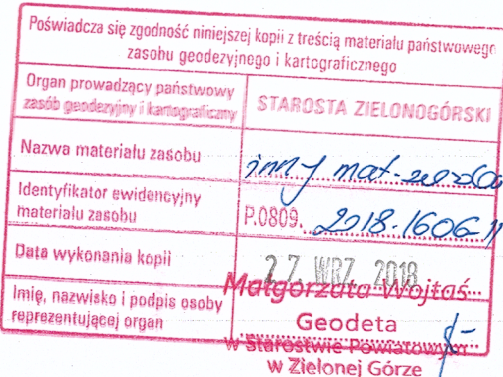 Poświadcza się zgodność niniejszej kopii z treścią materiału państwowego
zasobu geodezyjnego i kartograficznego
Organ prowadzący państwowy
zasób geodezyjny i kartograficzny
STAROSTA ZIELONOGÓRSKI
Nazwa materiału zasobu
inny mat.
Identyfikator ewidencyjny
materiału zasobu
P.0809. 2018.1606
Data wykonania kopii
27 WRZ. 2018
Imię, nazwisko i podpis osoby
reprezentującej organ
Małgorzata Wojtaś
Geodeta
w Starostwie Powiatowym
w Zielonej Górze